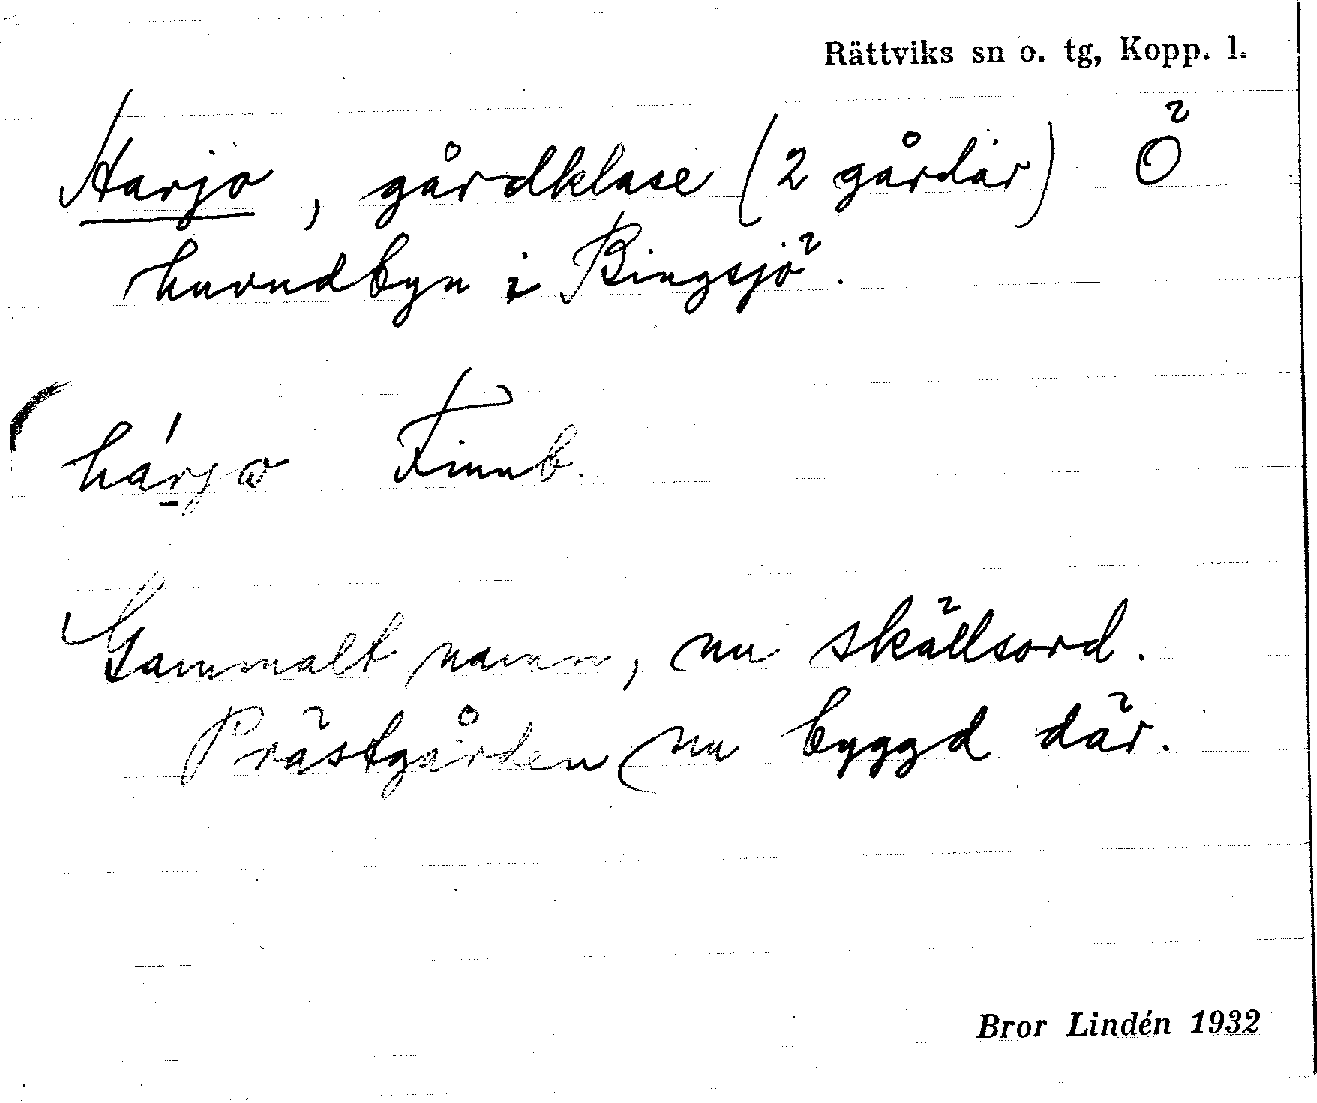 Rättviks sn o. tg, Kopp. l.
Harjo, gårdklase (2 gårdar) Ö
huvudbyn i Bingsjö.
hárjo Finnb.
Gammalt namn, nu skällsord.
Prästgården nu byggd där.
Bror Lindén 1932